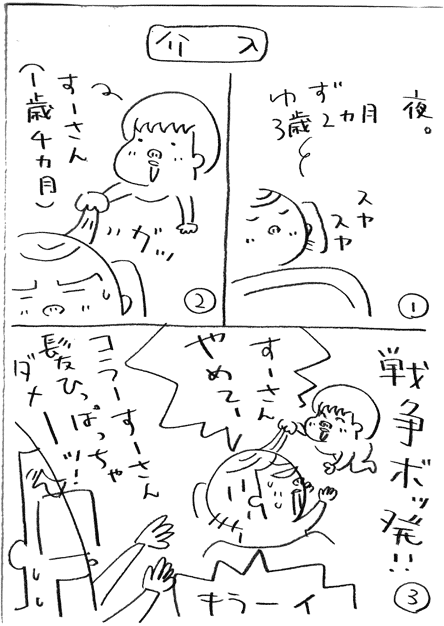 介入
夜。
ゆず
3歳2ヵ月
スヤ
スヤ
①
すーさん
(1歳4ヵ月)
ガッ
②
戦争ボッ発!!
すーさん
やめてー
コラーすーさん
髪ひっぱっちゃ
ダメーーッ!
キラーイ
③